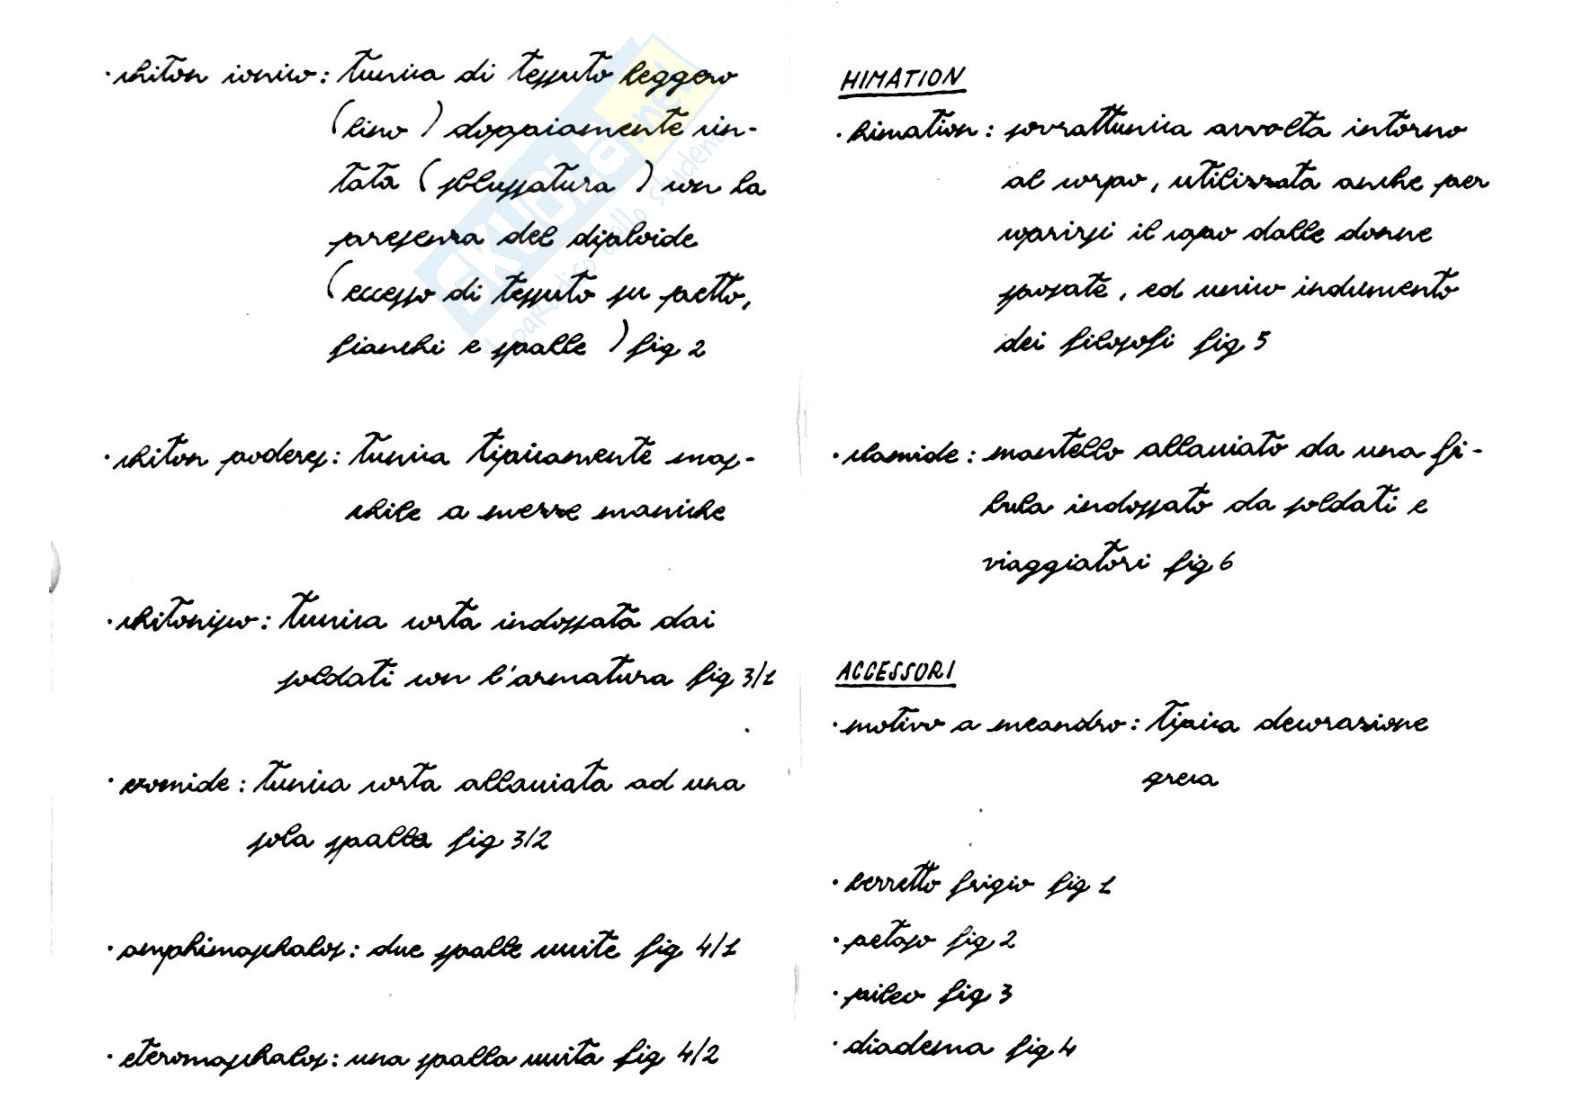 · chiton ionico: tunica di tessuto leggero
(lino) doppiamente cin-
tata (sblusatura) con la
presenza del diploide
(eccesso di tessuto su petto,
fianchi e spalle) fig 2
· chiton poderes: tunica tipicamente mas-
chile a mezze maniche
· chitonisco: tunica corta indossata dai
soldati con l'armatura fig 3/1
· exomide: tunica corta allacciata ad una
sola spalla fig 3/2
· amphimaschalos: due spalle unite fig 4/1
· eteromaschalos: una spalla unita fig 4/2
HIMATION
· himation: sovrattunica avvolta intorno
al corpo, utilizzata anche per
coprirsi il capo dalle donne
sposate, ed unico indumento
dei filosofi fig 5
· clamide: mantello allacciato da una fi-
bula indossato da soldati e
viaggiatori fig 6
ACCESSORI
· motivo a meandro: tipica decorazione
greca
· berretto frigio fig 1
· petaso fig 2
· pileo fig 3
· diadema fig 4
SKUOLA.net